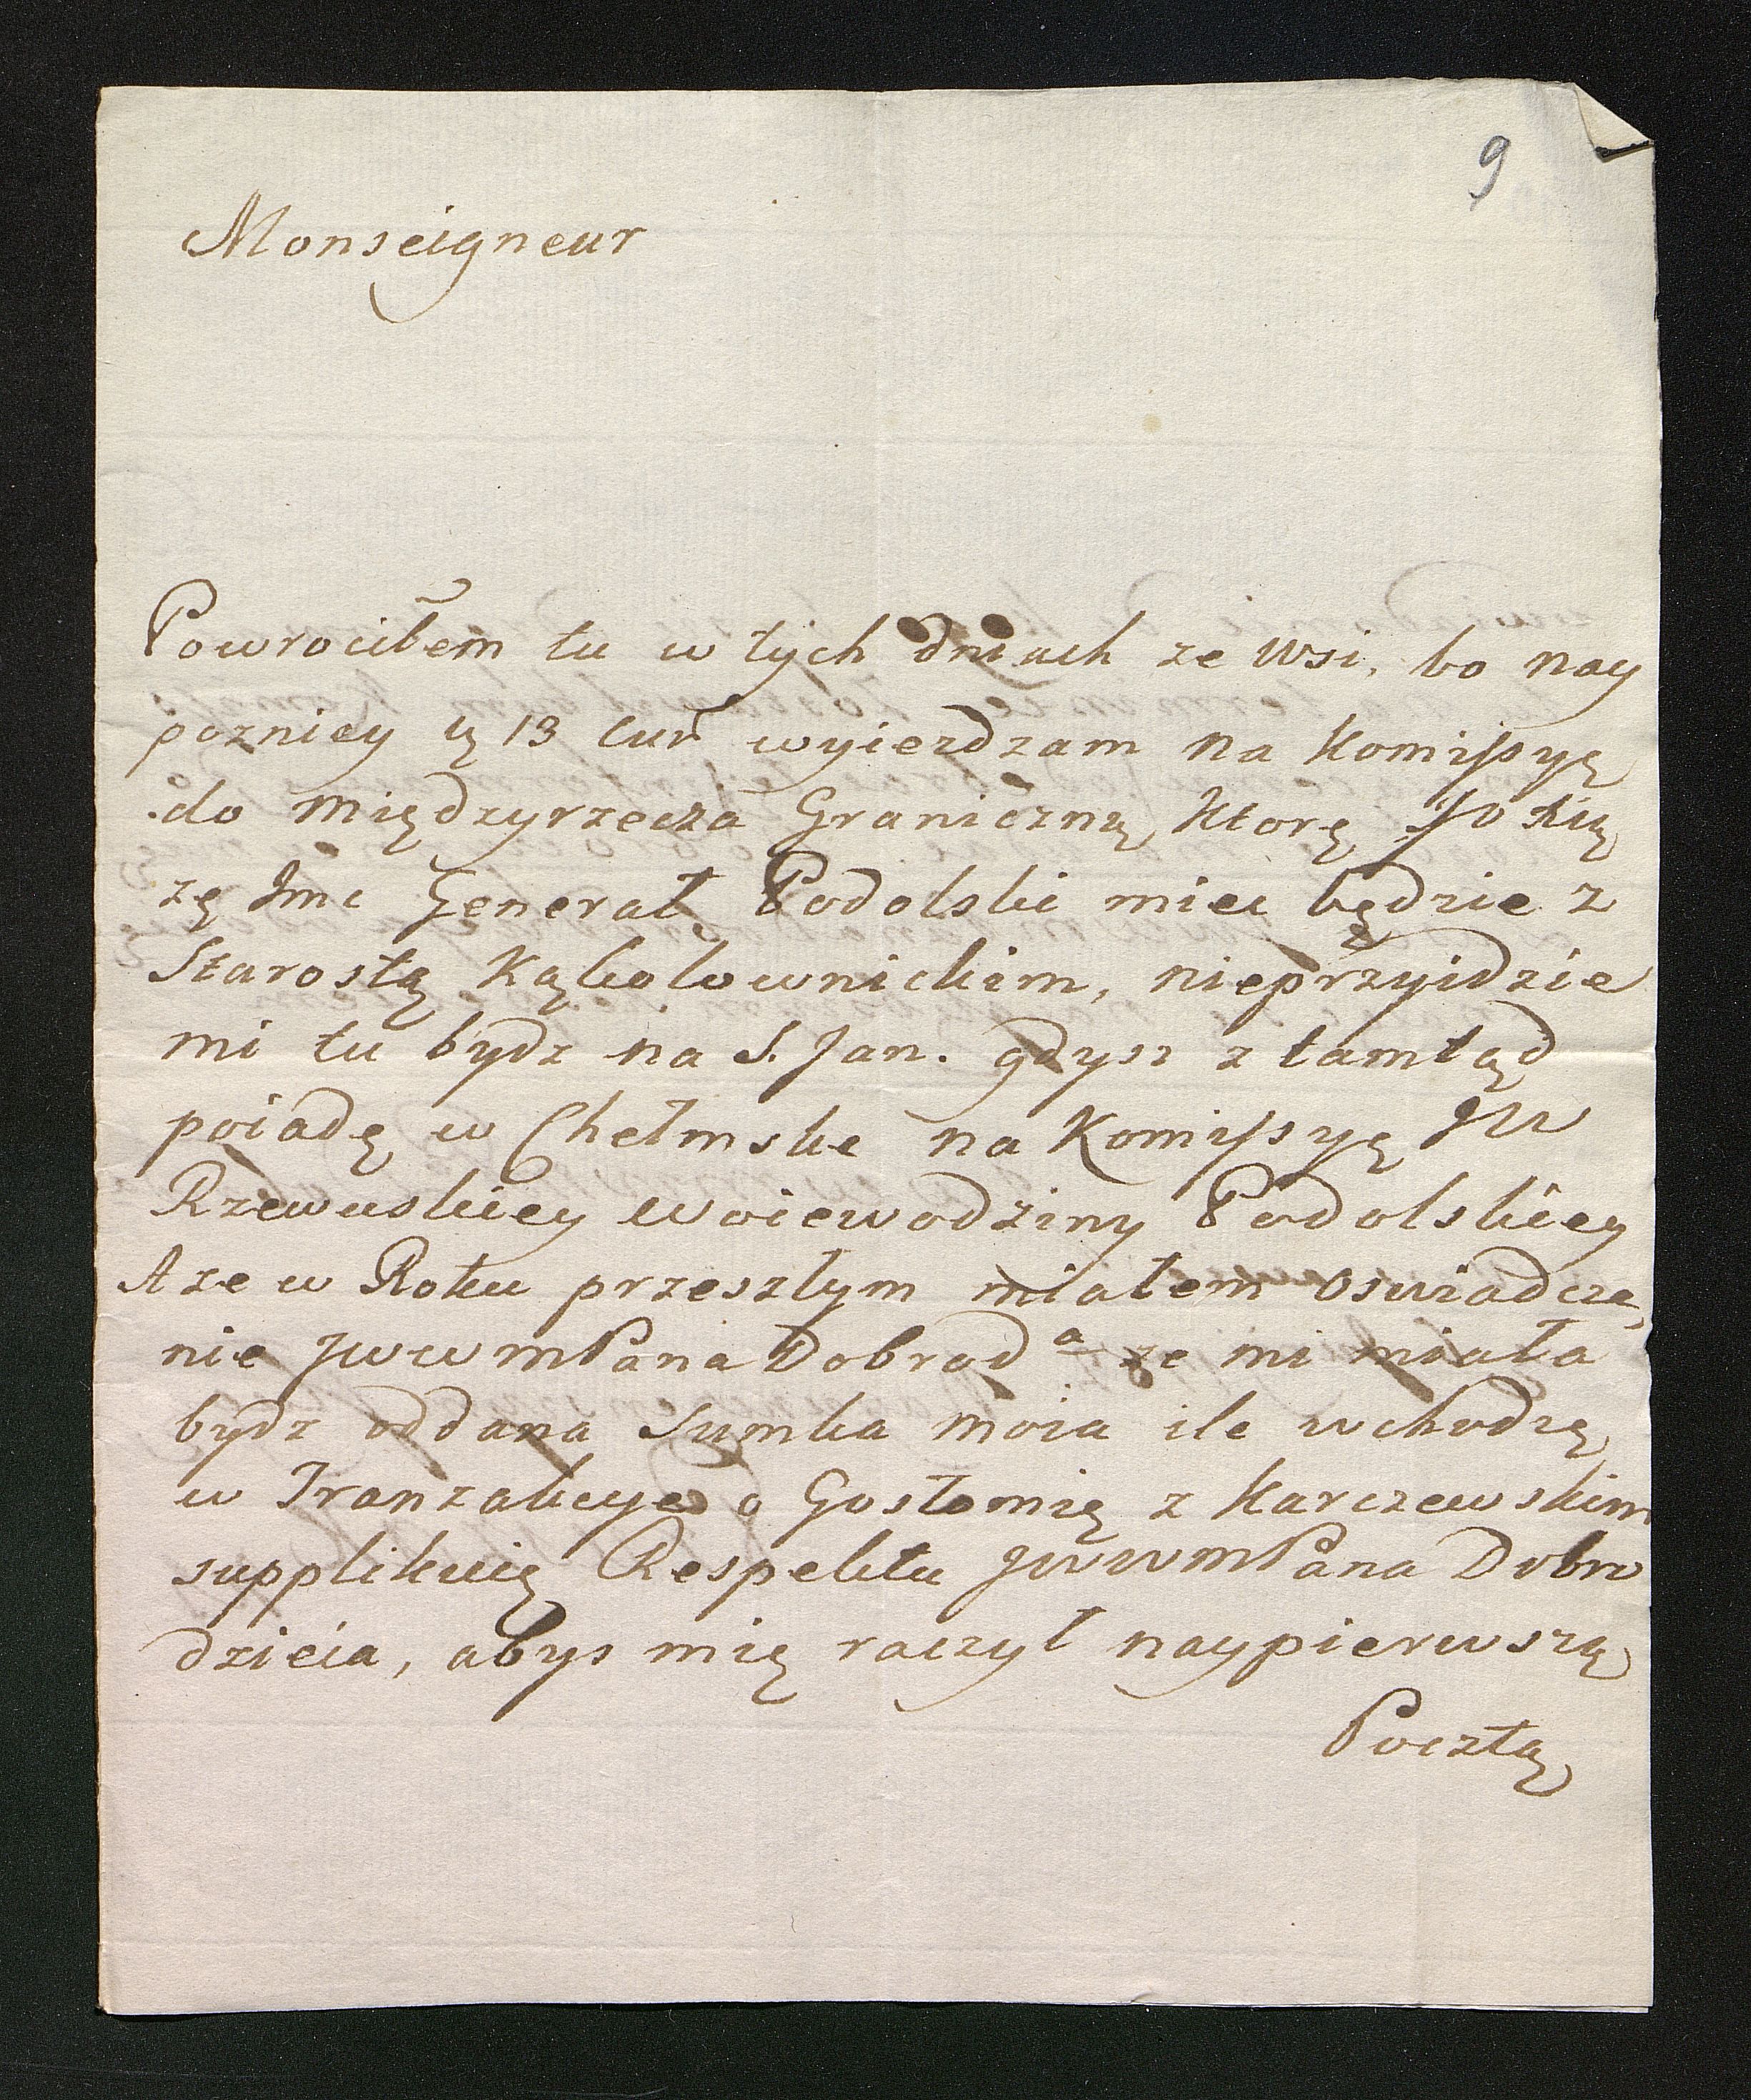 9
Monseigneur
Powrociłem tu w tych dniach ze wsi, bo nay
pozniey 13 cur wyiezdzam na Komissyę
do Międzyrzecza Graniczną, Ktorę JO Xią
zę Jmc Generał Podolski miec będzie z
Starostą Kąkolownickim, nieprzyidzie
mi tu bydz na S. Jan. gdysz z tamtąd
poiadę w Chełmskie na Komissyę JW
Rzewuskiey Woiewodziny Podolskiey
A ze w Roku przeszłym miałem oswiadcze,
nie JWWMPana Dobrod<sup>a</sup> ze mi miała
bydz oddana Sumka moia ile wchodzę
w Tranzakcye o Gostomię z Karczewskim
supplikuię Respektu JWWMPana Dobro
dzieia, abys mię raczył naypierwszą
Pocztą